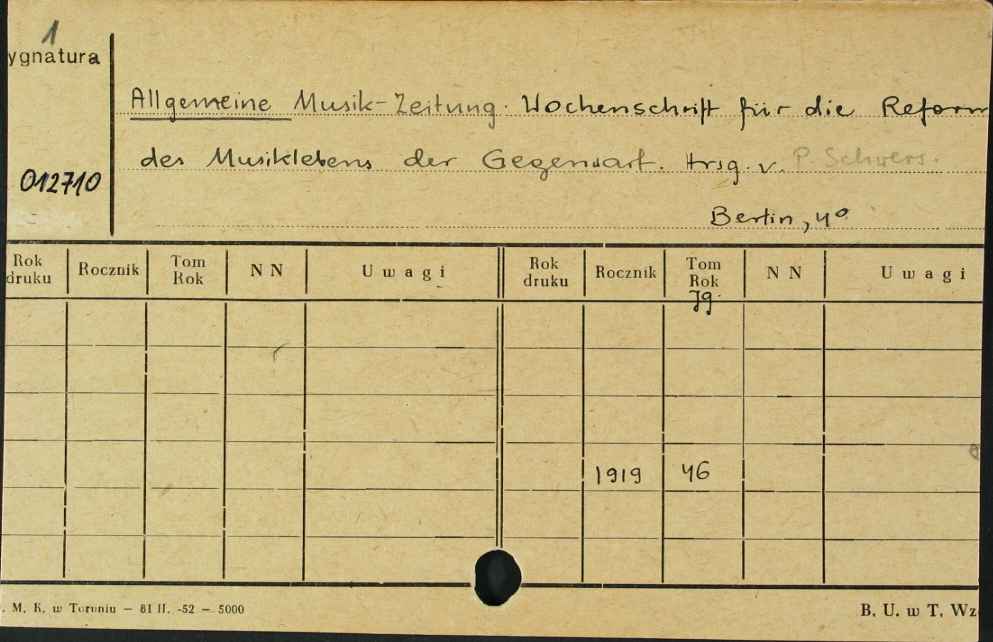 1
ygnatura
Allgemeine Musik-Zeitung. Wochenschrift für die Reform
des Musiklebens der Gegenwart. Hrsg. v. P. Schwers.
012710
Berlin, 4°
Rok druku Rocznik Tom Rok N N Uwagi Rok druku Rocznik Tom Rok N N Uwagi
Jg.
1919 46
. M. K. w Toruniu — 81 II. -52 — 5000 B. U. w T. Wz